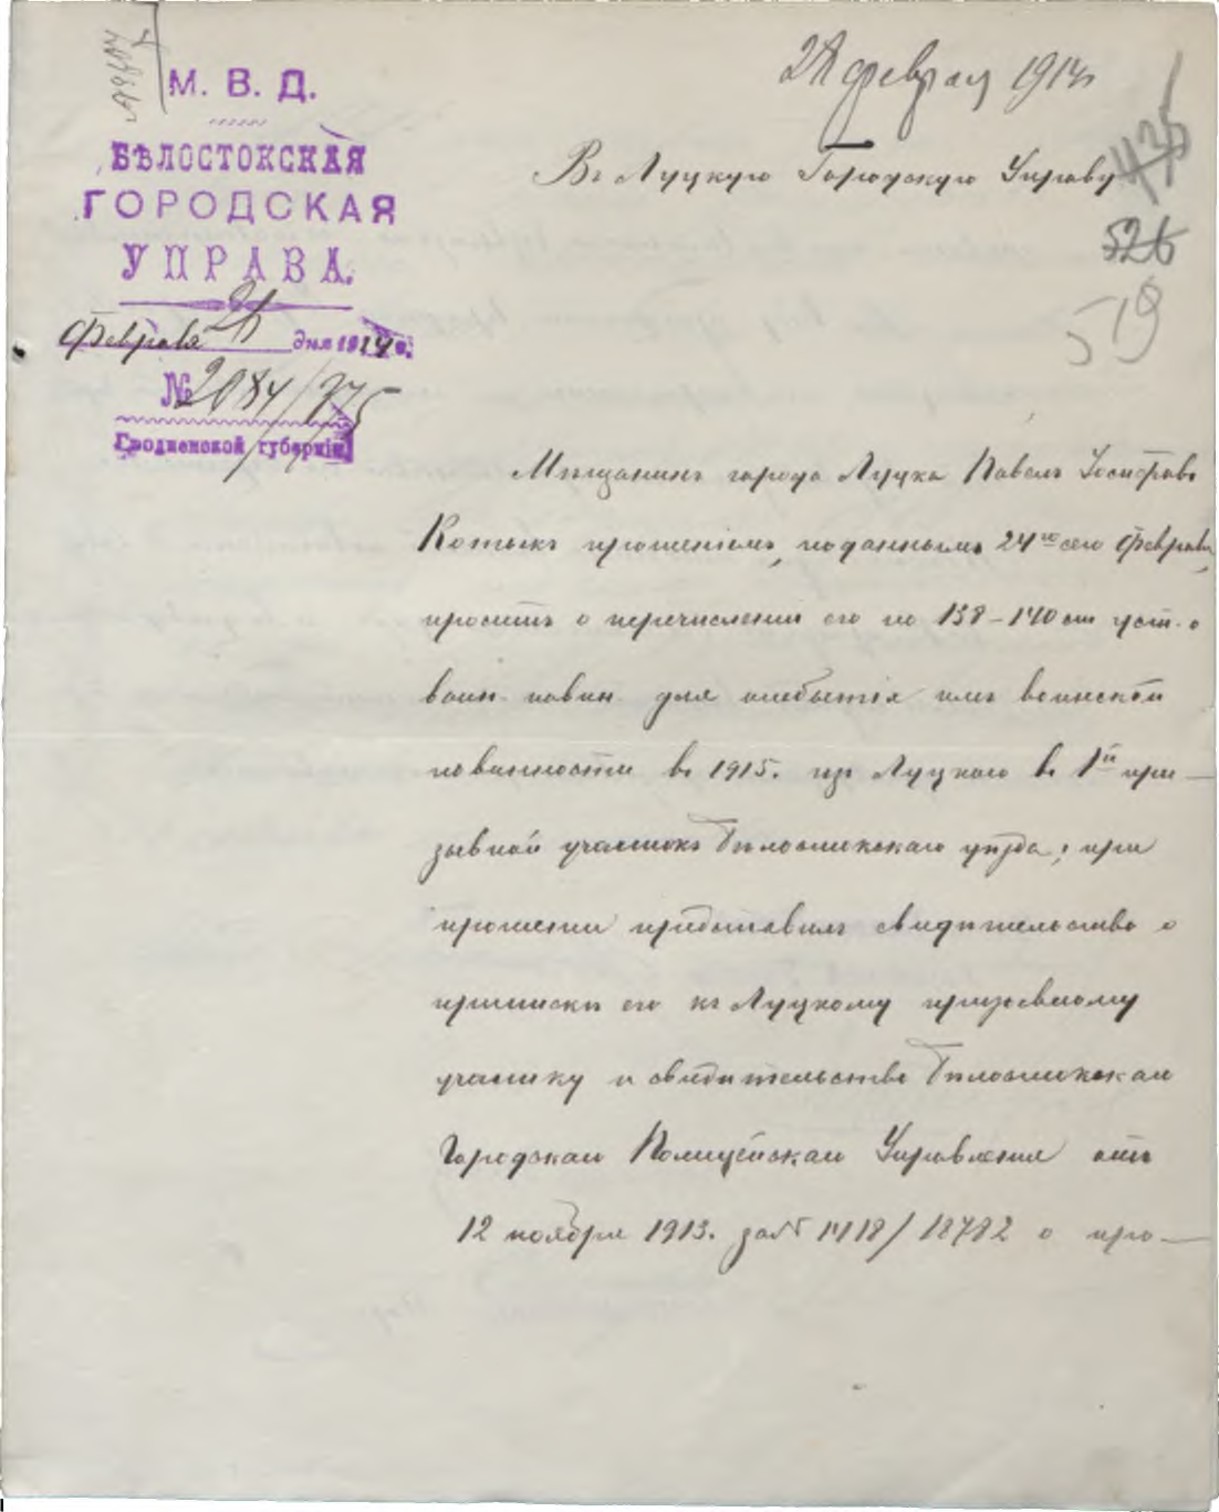 М. В. Д.
БѢЛОСТОКСКАЯ
ГОРОДСКАЯ
УПРАВА.
Февраля 26 дня 1914 г.
№ 2084/775
Гродненской губерніи
28 феврал 1914
Въ Луцкую Городскую Управу
435
526
519
Мѣщанинъ города Луцка Павелъ Іосифовъ
Котыкъ прошеніемъ, поданнымъ 24го сего Февраля,
проситъ о перечисленіи его по 138–140 ст уст. о
воин. повин. для отбытія имъ воинской
повинности въ 1915. изъ Луцкаго въ 1й при-
зывной участокъ Бѣлостокскаго уѣзда; при
прошеніи представилъ свидѣтельство о
припискѣ его къ Луцкому призывному
участку и свидѣтельство Бѣлостокскаго
Городскаго Полицейскаго Управленія отъ
12 ноября 1913. за № 1418/18782 о про-